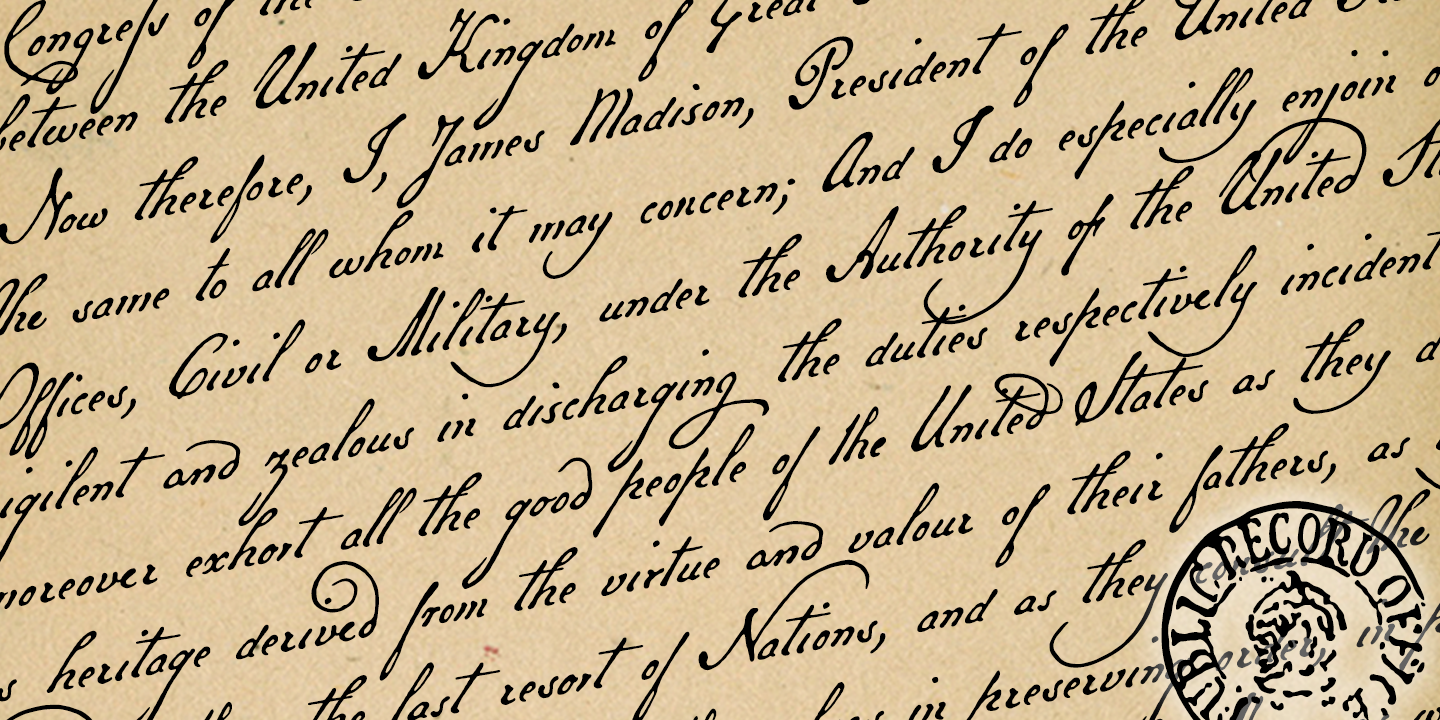 Congreſs of the
between the United Kingdom of Great
Now therefore, I, James Madison, President of the United
the same to all whom it may concern; And I do especially enjoin
Offices, Civil or Military, under the Authority of the United
vigilent and zealous in discharging the duties respectively incident
moreover exhort all the good people of the United States as they
heritage derived from the virtue and valour of their fathers, as
the last resort of Nations, and as they the
in preserving order, in
PUBLIC RECORD OFFIC